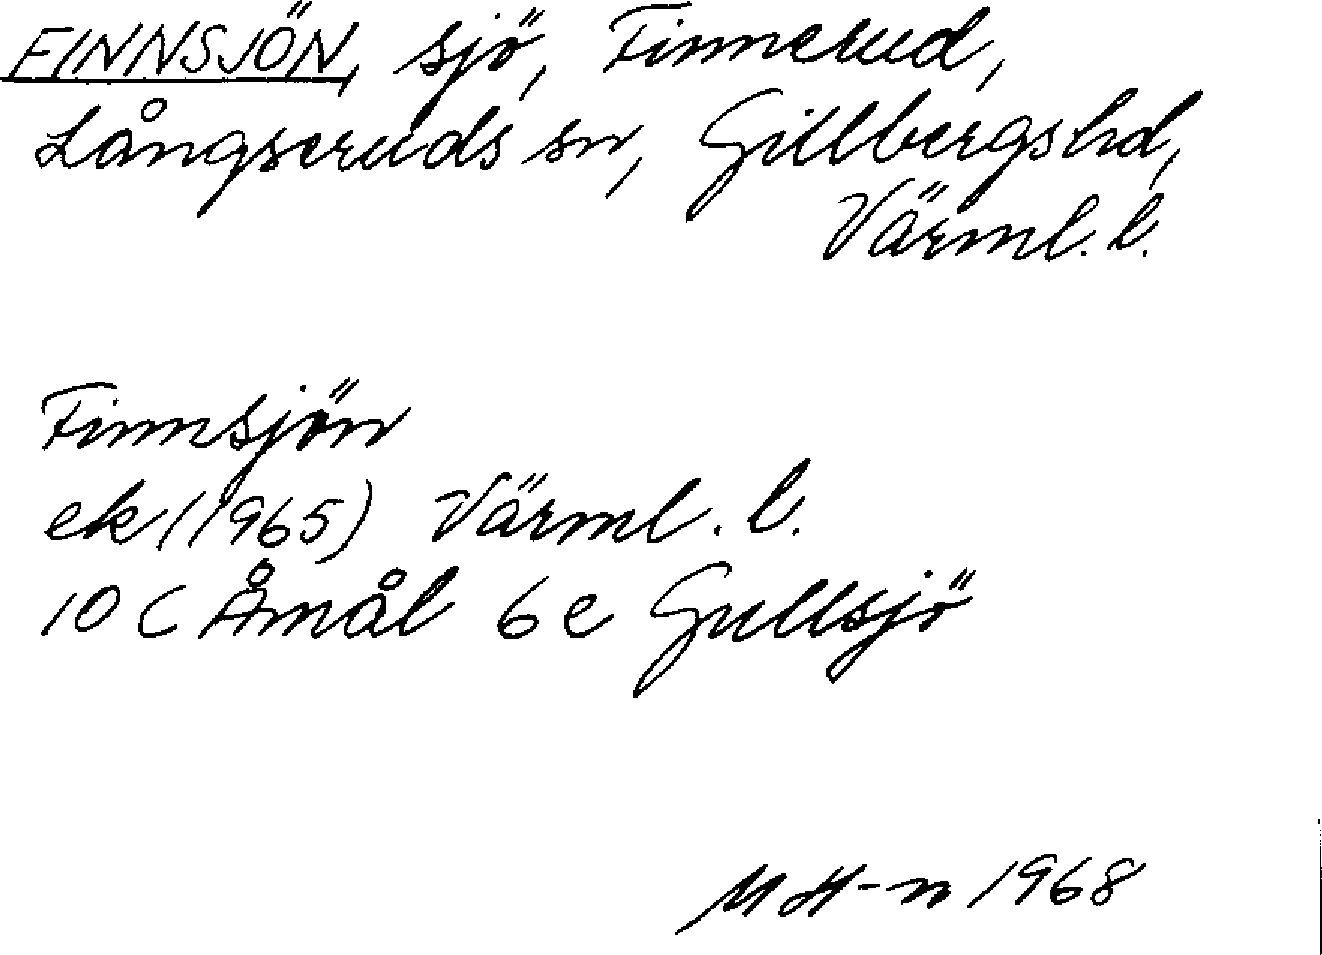 FINNSJÖN, sjö, Finnerud,
Långseruds sn, Gillbergs hd,
Värml. l.
Finnsjön
ek (1965) Värml. l.
10 C Åmål 6 e Gullsjö
M H-n 1968